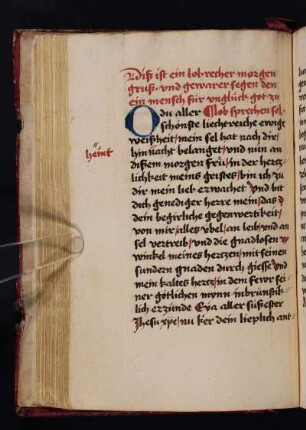 Diß ist ein lob recher morgen
gruß vnd gewarer segen den
ein mensch für vnglück got zu
O du aller lob sprechen sol
schönste liechtreiche ewige
weißheit mein sel hat nach dir
hÿnacht belanget vnd nun an
heint
dißem morgen frü in der hertz
lichkeit meins geistes bin ich zu
dir mein lieb erwachet vnd bit
dich genediger herre mein das
dein begirliche gegenwertikeit
von mir alles vbel an leib vnd an
sel vertreib vnd die gnadlosen
winkel meines hertzen mit seinen
sundern gnaden durch giesse vnd
mein kaltes hertz in dem fewr sei
ner götlichen mynn inbrünstik
lich erzünde Eya aller süssester
Jhesu xpe nu ker dein lieplich ant